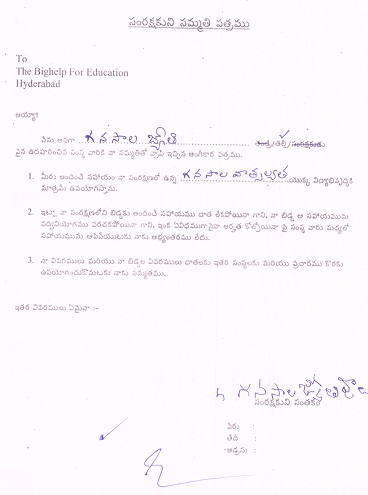 సంరక్షకుని సమ్మతి పత్రము
To
The Bighelp For Education
Hyderabad
అయ్యా!
నేను అనగా గనసాల జ్యోతి తండ్రి/తల్లి/సంరక్షకుడు
పైన ఉదహరించిన సంస్థ వారికి నా సమ్మతితో వ్రాసి ఇచ్చిన అంగీకార పత్రము.
1. మీరు అందించే సహాయం నా సంరక్షణలో ఉన్న గనసాల వాత్సల్యత యొక్క విద్యాభివృద్ధికి
మాత్రమే ఉపయోగిస్తాను.
2. ఇట్లా నా సంరక్షణలోని బిడ్డకు అందించే సహాయము దాత లేకపోయినా గాని, నా బిడ్డ ఆ సహాయమును
సద్వినియోగము పరచకపోయినా గాని, ఇంక ఏవిధముగానైనా అర్హత కోల్పోయినా పై సంస్థ వారు మధ్యలో
సహాయమును ఆపివేయుటకు నాకు అభ్యంతరము లేదు.
3. నా వివరములు మరియు నా బిడ్డల వివరములు దాతలకు ఇతర సంస్థలకు మరియు ప్రచారము కొరకు
ఉపయోగించుకొనుటకు నాకు సమ్మతము.
ఇతర వివరములు ఏమైనా :-
గనసాల
సంరక్షకుని సంతకం
పేరు :
తేదీ :
అడ్రసు :